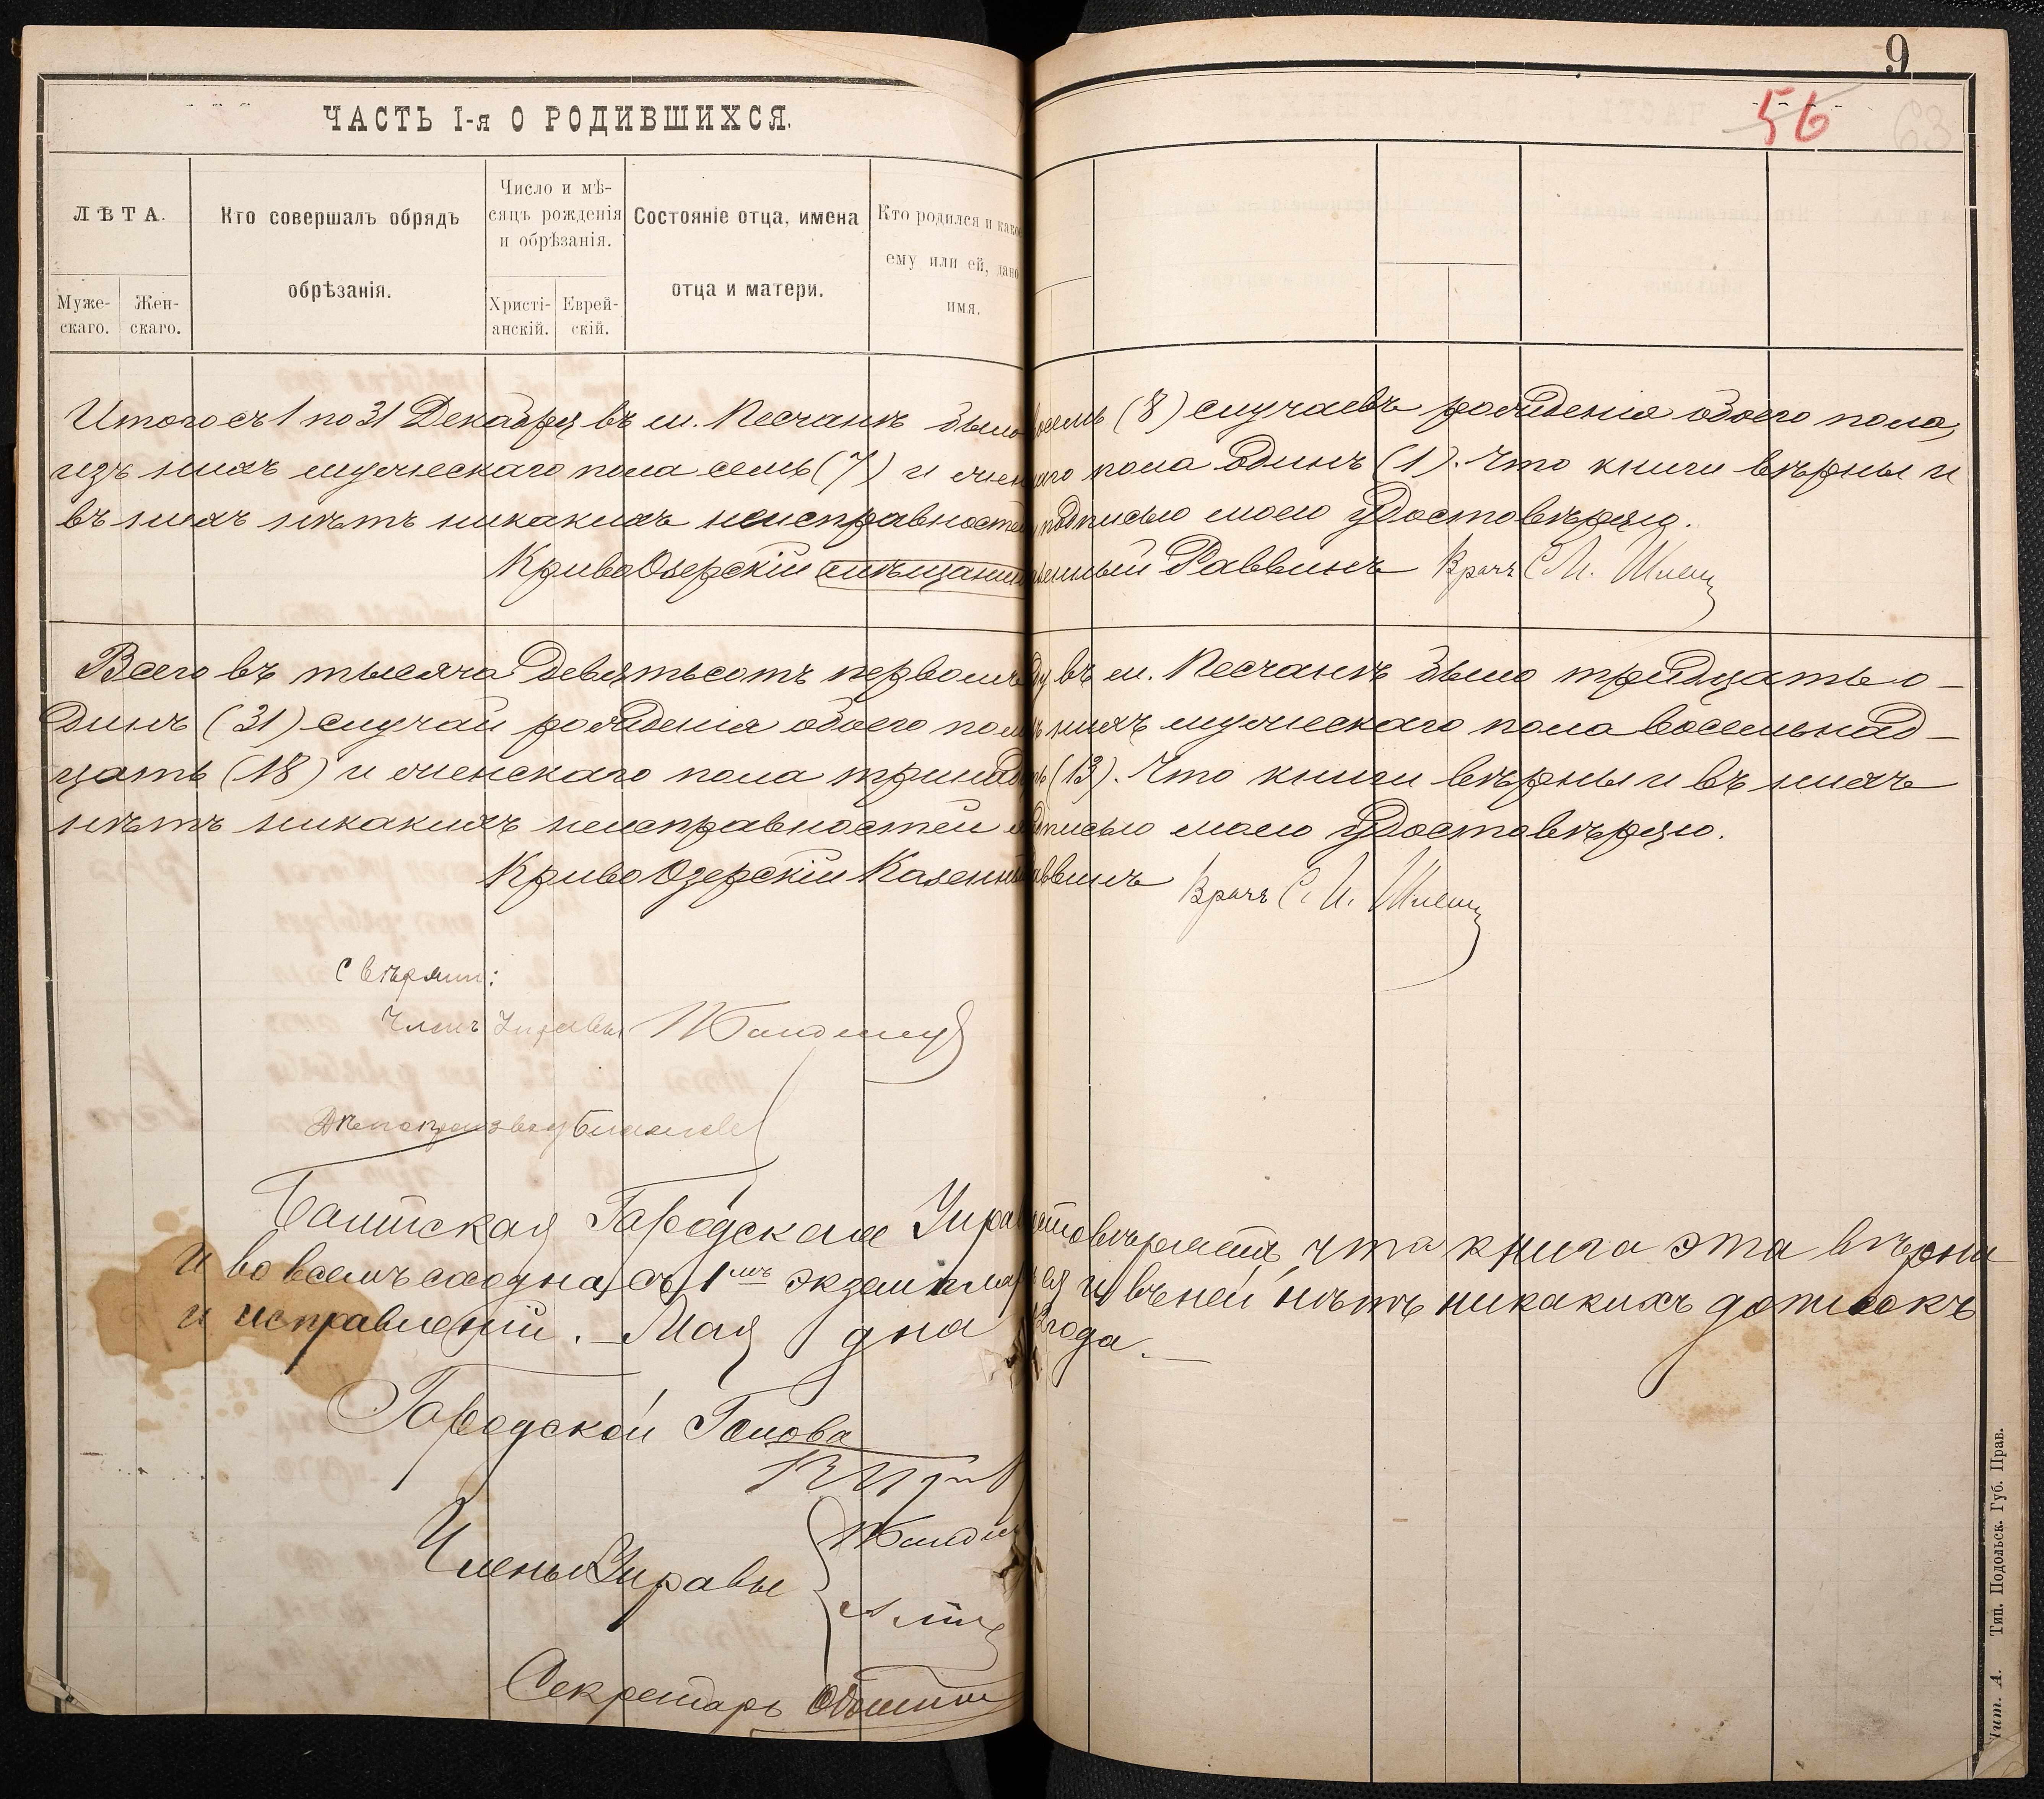 9
56
63
ЧАСТЬ I-я О РОДИВШИХСЯ.
ЛѢТА.
Муже-
скаго.
Жен-
скаго.
Кто совершалъ обрядъ
обрѣзанія.
Число и мѣ-
сяцъ рожденія
и обрѣзанія.
Христі-
анскій.
Еврей-
скій.
Состояніе отца, имена
отца и матери.
Кто родился и како
ему или ей, дано
имя.
Итого съ 1 по 31 Декабря въ м. Песчанкѣ было восемь (8) случаевъ рожденія обоего пола,
изъ нихъ мужескаго пола семь (7) и женскаго пола одинъ (1). Что книги вѣрны и
въ нихъ нѣтъ никакихъ неисправностей подписью моею удостовѣряю.
КривоОзерскій Раввинъ Врачъ С. И.
Всего въ тысяча девятьсотъ первомъ году въ м. Песчанкѣ было тридцать о-
динъ (31) случай рожденія обоего пола нихъ мужескаго пола восемьнад-
цать (18) и женскаго пола тринадцать (13). Что книги вѣрны и въ нихъ
нѣтъ никакихъ неисправностей подписью моею удостовѣряю.
КривоОзерскій Казенный Раввинъ Врачъ С. И.
Свѣряли:
Членъ Управы
Балтская Городская Управа что книга эта вѣрна
и во всемъ сходна съ 1мъ экземпляромъ и въ ней нѣтъ никакихъ
и исправленій. — Мая дня года.
Городской Голова
Члены Управы
Секретарь
Лит. А. Тип. Подольск. Губ. Прав.